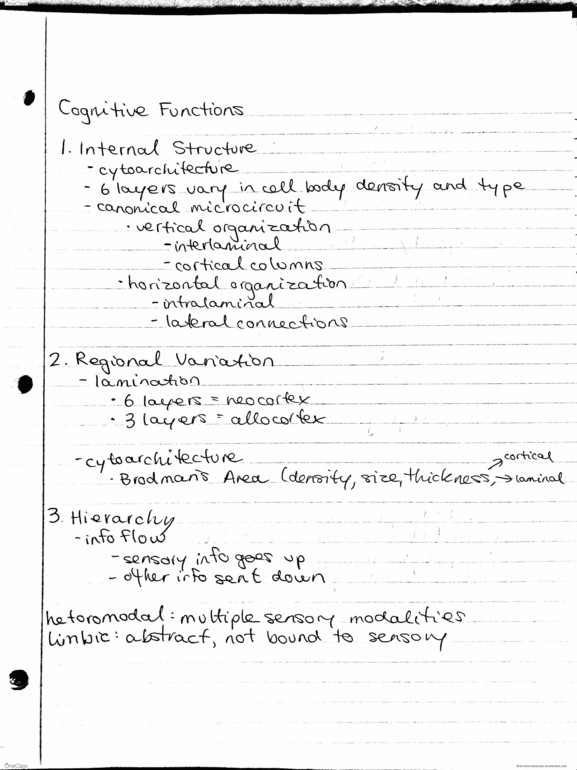 Cognitive Functions
1. Internal Structure
- cytoarchitecture
- 6 layers vary in cell body density and type
- canonical microcircuit
• vertical organization
- interlaminal
- cortical columns
• horizontal organization
- intralaminal
- lateral connections
2. Regional Variation
- lamination
• 6 layers = neocortex
• 3 layers = allocortex
- cytoarchitecture
→ cortical
• Brodman's Area (density, size, thickness, → laminal
3. Hierarchy
- info flow
- sensory info goes up
- other info sent down
hetoromodal: multiple sensory modalities
limbic: abstract, not bound to sensory
OneClass